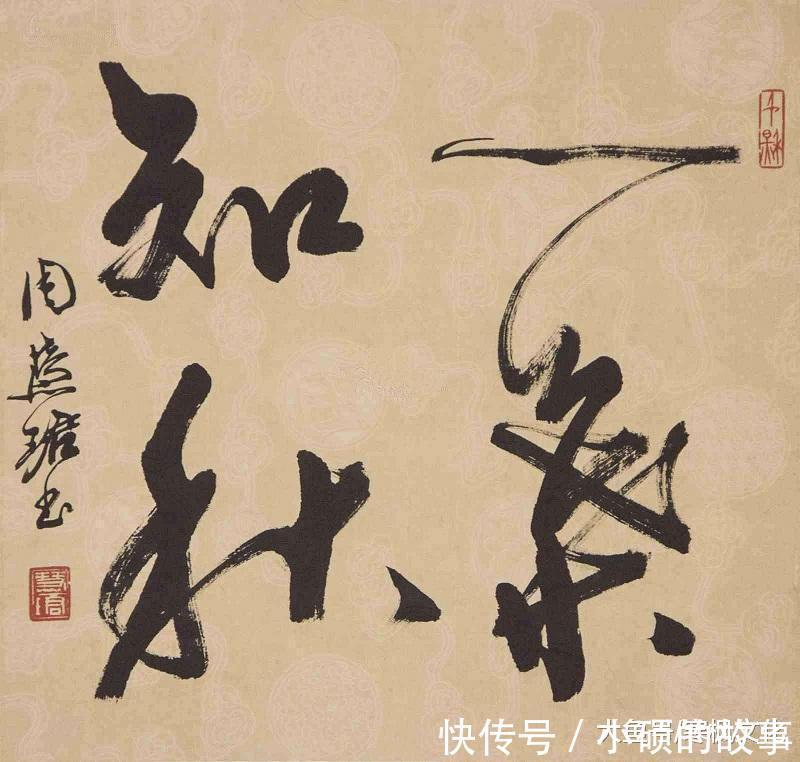 一叶
知秋
周慧珺书
快传号 / 小硕的故事